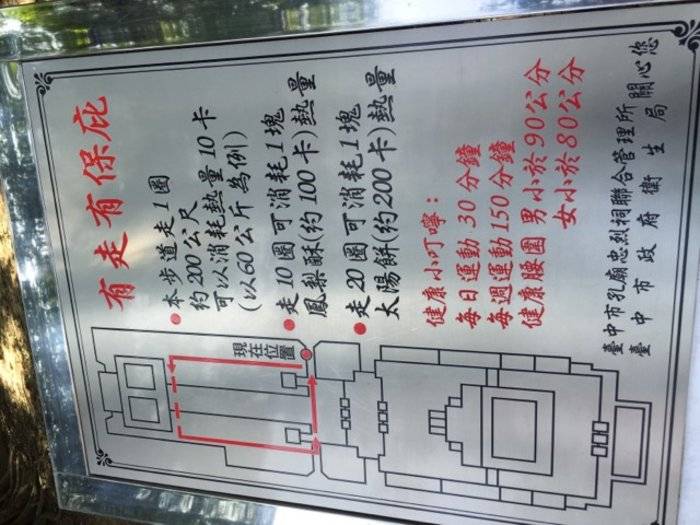 有走有保庇
●本步道走1圈
約200公尺
可以消耗熱量10卡
(以60公斤為例)
●走10圈可消耗1塊
鳳梨酥(約100卡)熱量
●走20圈可消耗1塊
太陽餅(約200卡)熱量
健康小叮嚀:
每日運動30分鐘
每週運動150分鐘
健康腰圍 男小於90公分
女小於80公分
臺中市孔廟忠烈祠聯合管理所
臺中市政府衛生局
關心您
現在位置